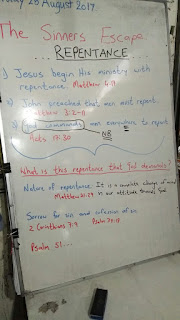 25 August 2017
The Sinners Escape
REPENTANCE
1) Jesus begin His ministry with
repentance. Matthew 4:17
2) John preached that men must repent.
Matthew 3:2-11
3) God commands men everywhere to repent
NB
Acts 17:30
What is this repentance that God demands?
Nature of repentance: It is a complete change of mind
Matthew 21:29 in our attitude towards God
Sorrow for sin and confession of sin
2 Corinthians 7:9 Psalm 38:18
Psalm 51...